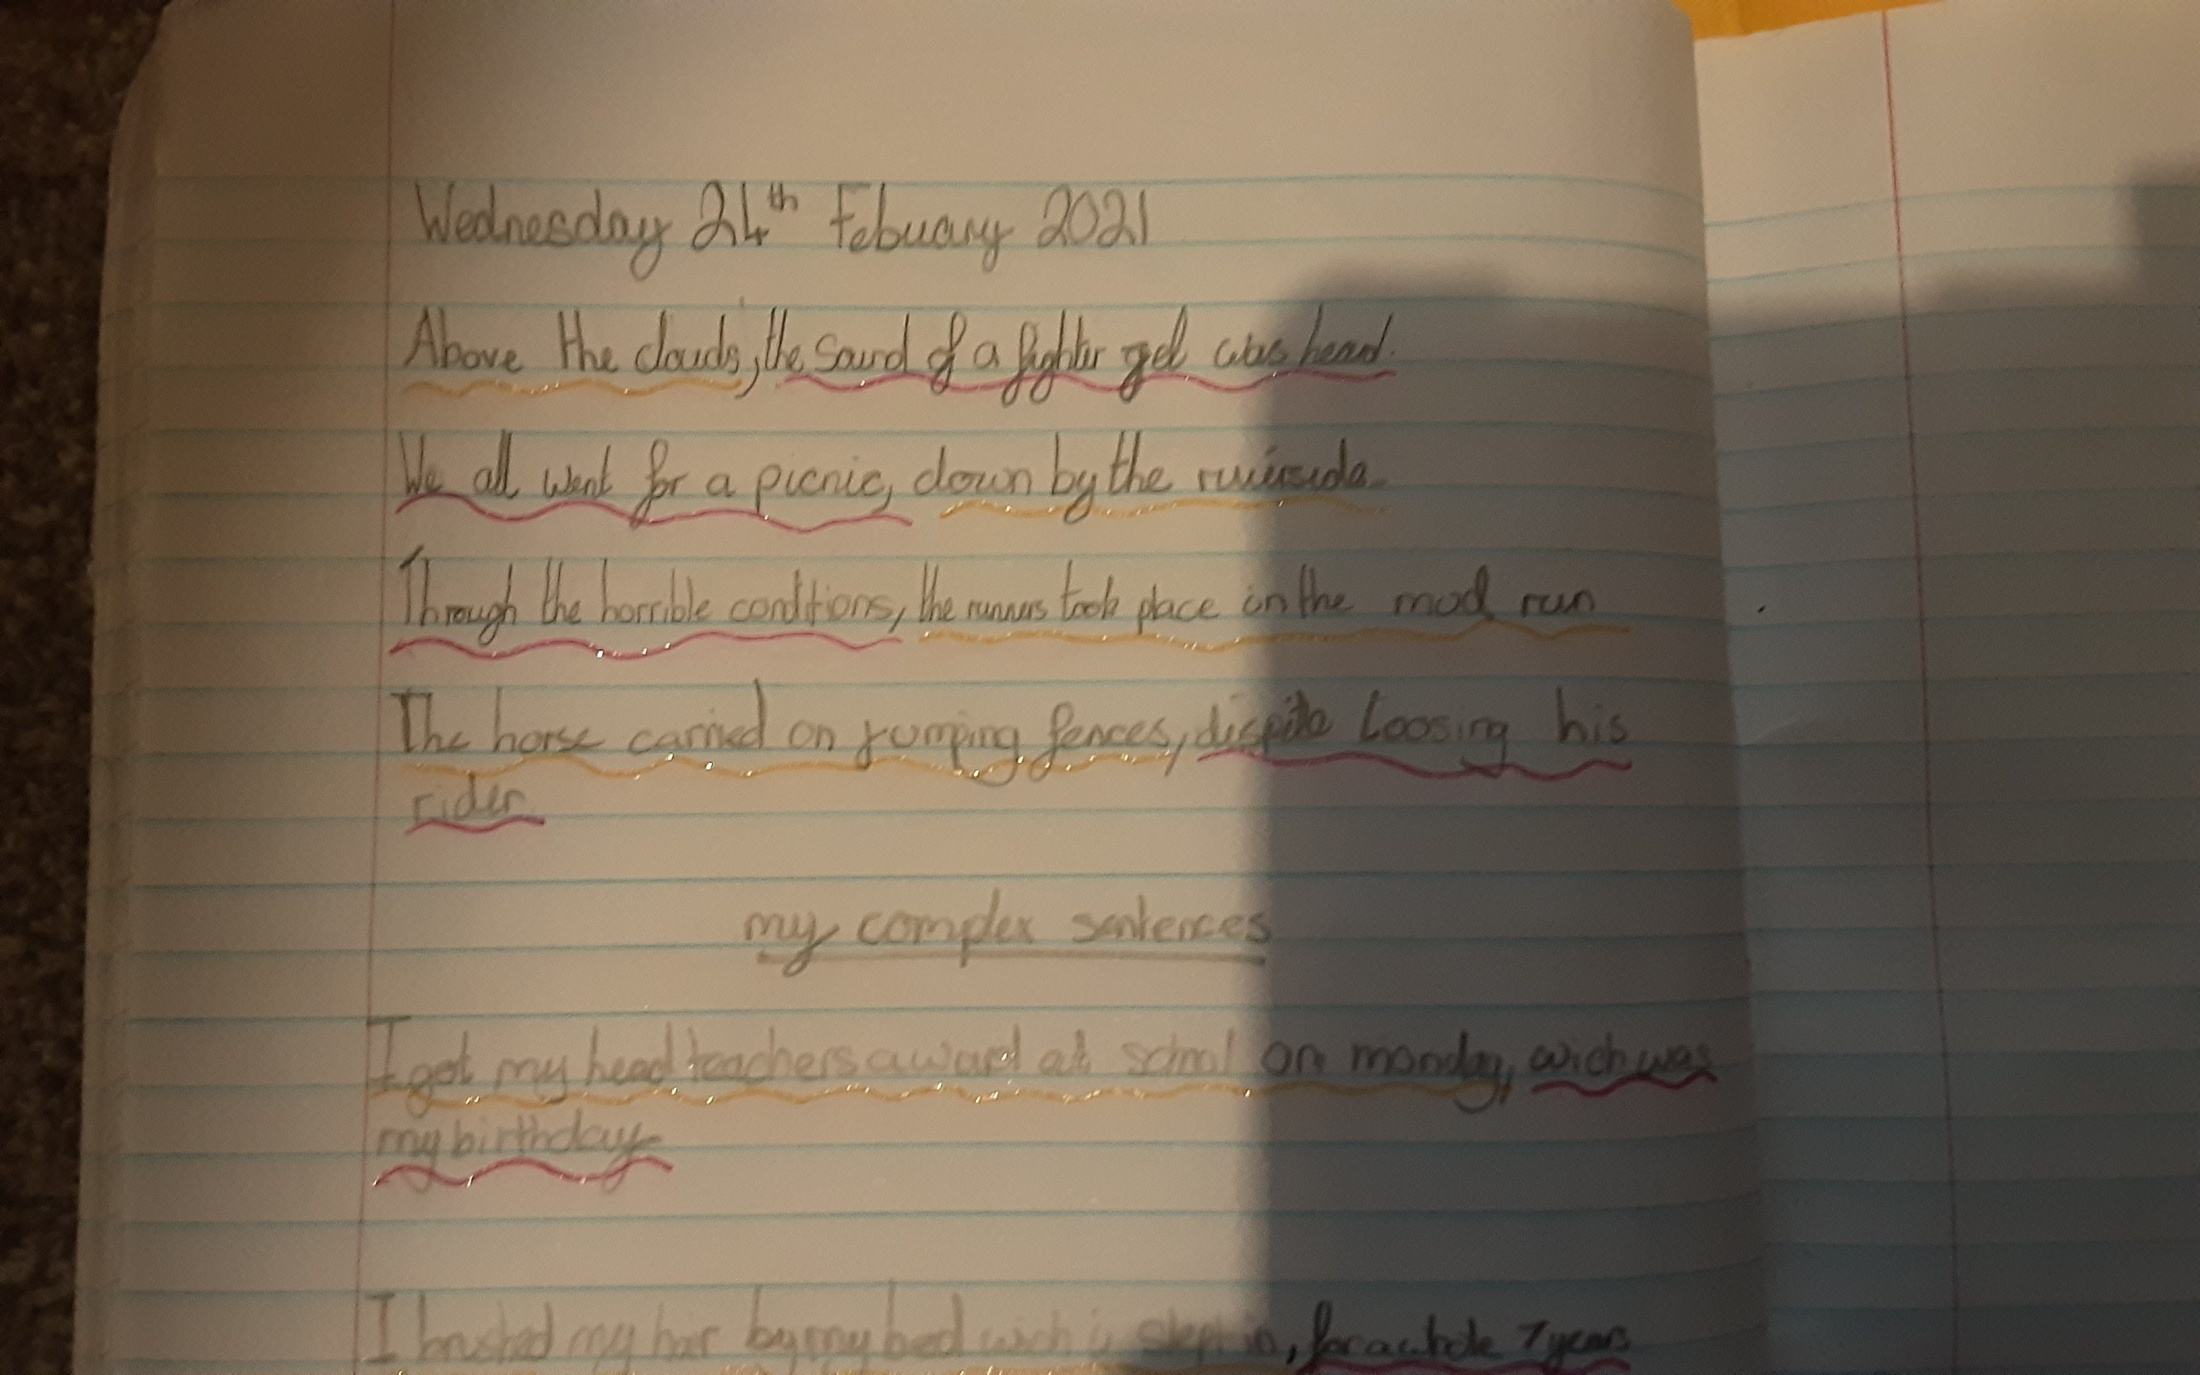 Wednesday 24th Febuary 2021
Above the clouds, the sound of a fighter get was heard.
We all went for a picnic, down by the
Through the horrible conditions, the runners took place in the mud run
The horse carried on jumping fences, dispite loosing his
rider.
my complex sentences
I got my head teachers award at school on monday, wich was
my birthday
I brushed my hair by my bed wich i slept in, for a whole 7 years